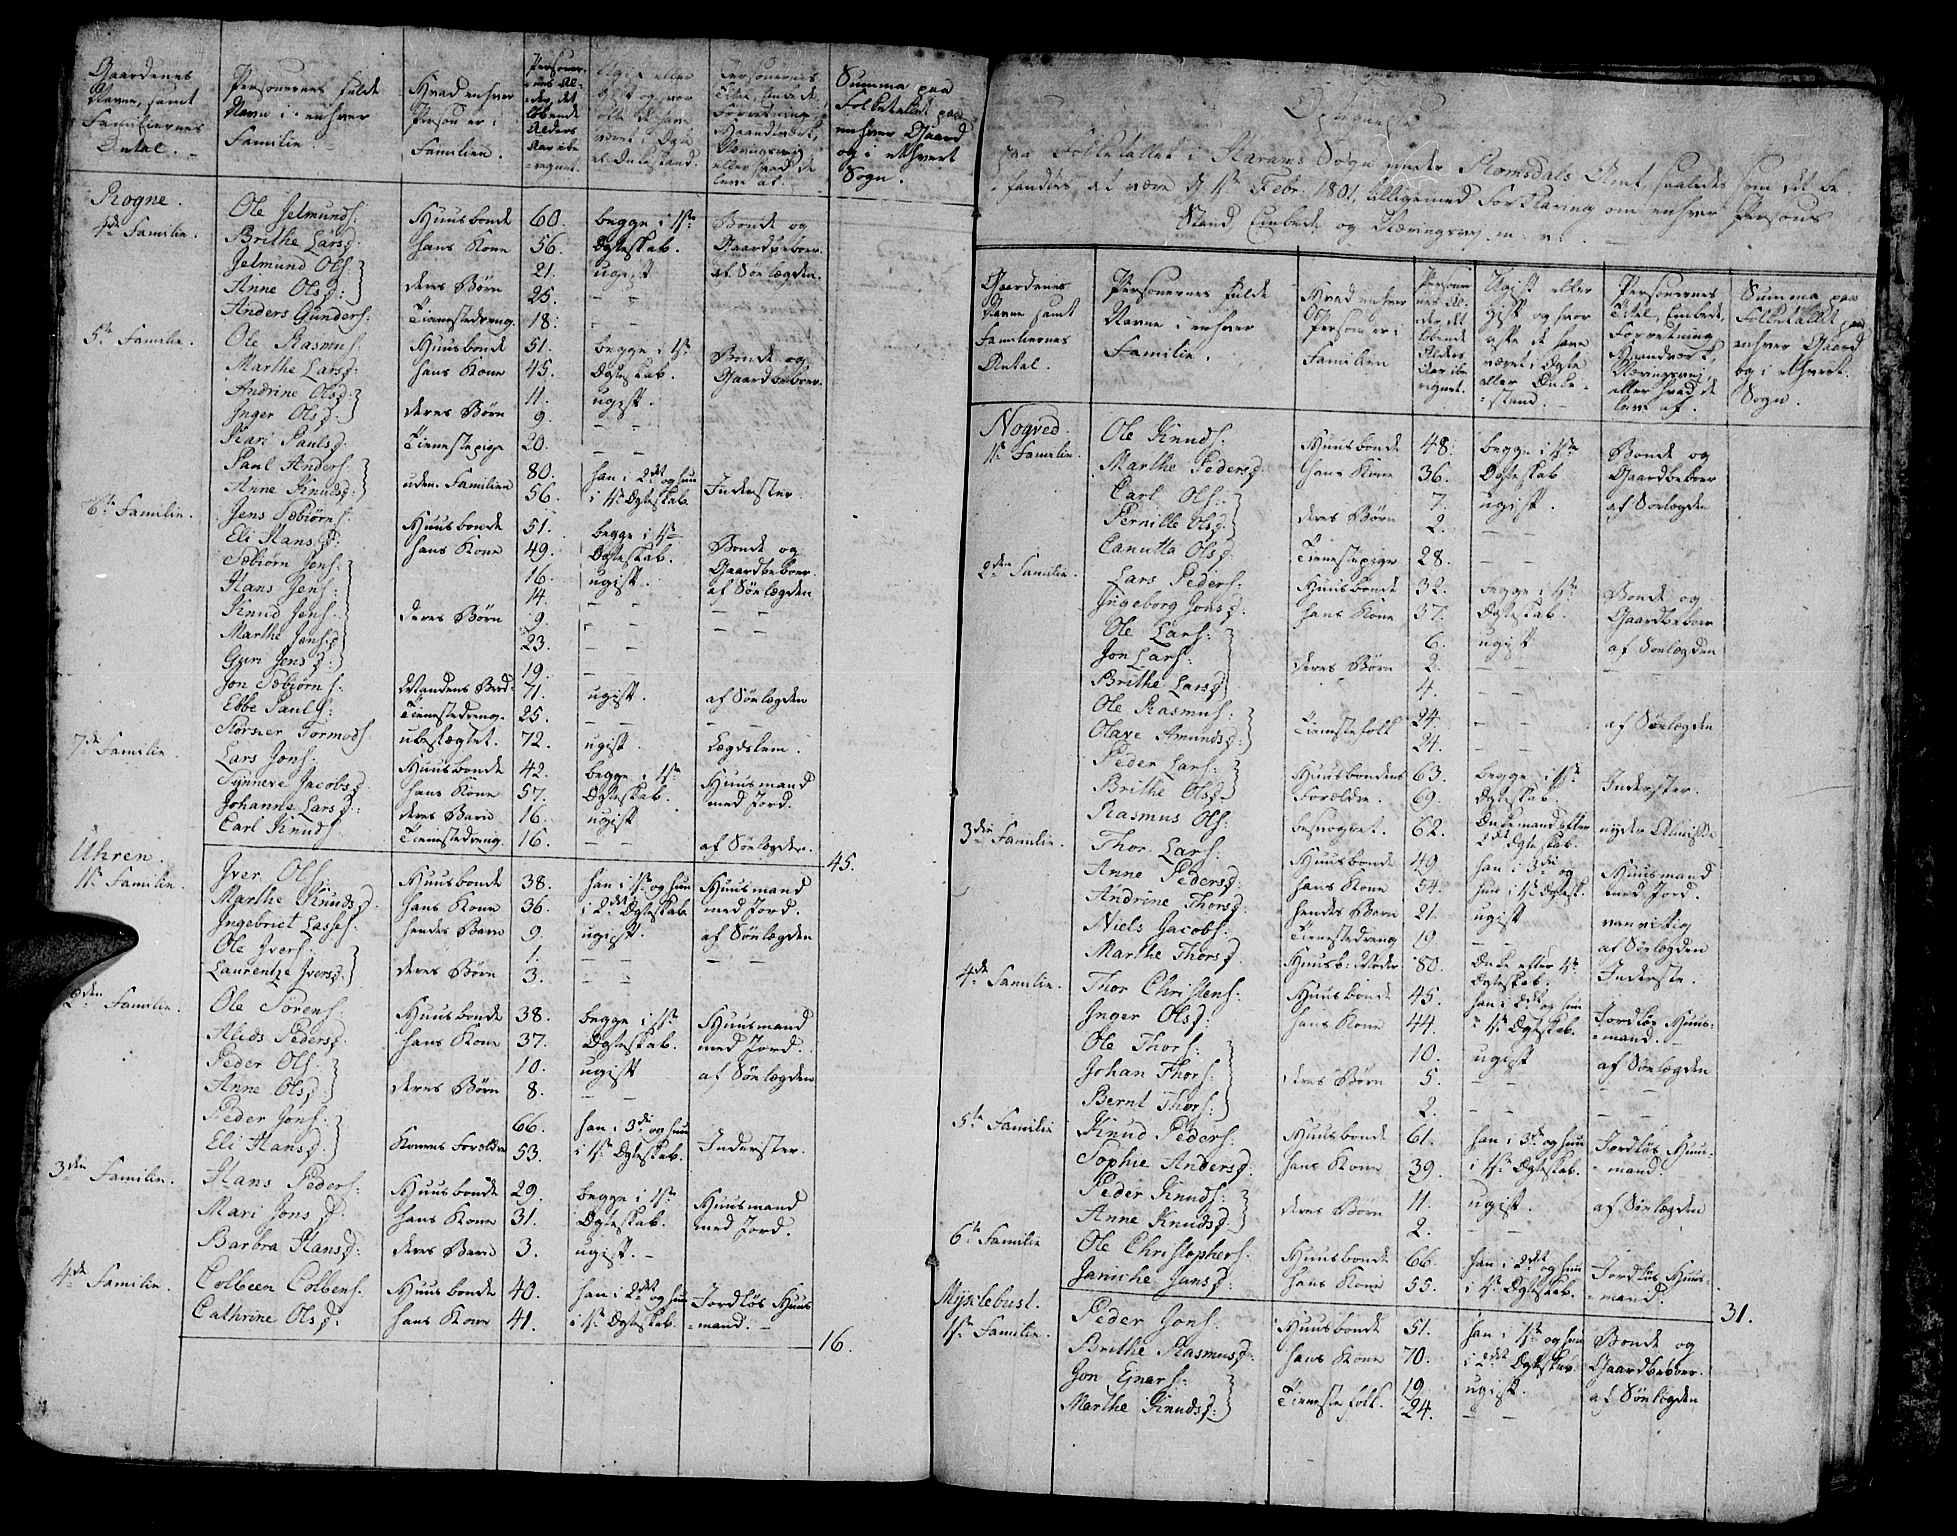 Gaardenes Navne, samt Familiernes Antal.
Personernes fulde Navn i enhver Familie.
Hvad enhver Person er i Familien.
Personernes Alder, det løbende Alders Aar iberegnet.
Ugivt eller givt og hvor ofte de have været i Ægte eller Enkestand.
Personernes Titel, Embede, Forretning, Haandværk, Næringsvej eller hvad de leve af.
Summa paa Folketallet paa enhver Gaard og i ethvert Sogn.
Rogne.
4de Familie. Ole Jelmunds: Huusbonde 60. begge i 1ste Bonde og
Brithe Larsd: hans Kone 56. Ægteskab. Gaardbeboer
Jelmund Ols: 21. ugift af Sønlægden.
Anne Olsd: deres Børn 25. — —
Anders Gunders: Tienestedreng. 18. — —
5te Familie. Ole Rasmus: Huusbonde 51. begge i 1ste Bonde og
Marthe Larsd: hans Kone 45. Ægteskab. Gaardbeboer.
Andrine Olsd: 11. ugift.
Inger Olsd: deres Børn 9. — —
Kari Paulsd: Tienestepige 20. — —
Paul Anders: 80. han i 2det og hun
Anne Knudsd: uden Familien 56. i 1ste Ægteskab. Inderster.
6te Familie. Jens Tøbiørns: Huusbonde 51. begge i 1ste Bonde og
Eli Hansd: hans Kone 49. Ægteskab. Gaardbeboer
Tøbiørn Jens: 16. ugift. af Sønlægden
Hans Jens: 14. — — — —
Knud Jens: deres Børn 9. — — — —
Marthe Jensd: 23. — —
Guri Jensd: 19. — —
Jon Tøbiørns: Mandens Brod: 71. ugift. af Sønlægden
Ebbe Pauls: Tienestedreng. 25. — — — —
Størsner Tormods: ubeslægtet. 72. ugift. Lægdslem.
7de Familie Lars Jons: Huusbonde 42. begge i 1ste Huusmand
Synneve Jacobsd: hans Kone 57. Ægteskab. med Jord.
Johanne Larsd: deres Barn 16. ugift
Carl Knuds: Tienestedreng. 16. — — af Sønlægden. 45.
Uhren.
1ste Familie. Iver Ols: Huusbonde 38. han i 1ste og hun Huusmand
Marthe Knudsd: hans Kone 36. i 2det Ægteskab med Jord.
Ingebriet Lasses: hendes Barn 9. ugift. af Sønlægden
Ole Ivers: 1. — —
Laurentze Iversd: deres Børn 3. — —
2den Familie. Ole Sørens: Huusbonde 38. begge i 1ste Huusmand
Alids Pedersd: hans Kone 37. Ægteskab. med Jord.
Peder Ols: 10. ugift af Sønlægden
Anne Olsd: deres Børn 8. — —
Peder Jons: 66. han i 3die og hun
Eli Hansd: Konens Forældre 53. i 1ste Ægteskab. Inderster.
3die Familie. Hans Peders: Huusbonde 29. begge i 1ste Huusmand
Mari Jonsd: hans Kone 31. Ægteskab. med Jord.
Barbra Hansd: deres Barn 3. ugift. —
4de Familie. Colbeen Colbens: Huusbonde 40. han i 2det og hun Jordløs Huus
Cathrine Olsd: hans Kone 41. i 1ste Ægteskab. =mand. — 16.
paa Folketallet i Harams Sogn under Romsdals Amt, saaledes som det be-
fandtes at være d. 1ste Febr. 1801, tilligemed Forklaring om enhver Persons
Stand Embede og Næringsvej m. v. —
Gaardenes Navne samt Familiernes Antal.
Personernes fulde Navne i enhver Familie.
Hvad enhver Person er i Familien
Personernes Alder det løbende Alders Aar iberegnet.
Ugift eller Gift og hvor ofte de have været i Ægte eller Enkestand.
Personernes Titel, Embede, Forretning, Haandværk, Næringsvej, eller hvad de leve af.
Summa paa Folketallet paa enhver Gaard og i ethvert Sogn.
Nogved.
1ste Familie. Ole Knuds: Huusbonde 48. begge i 1ste Bonde og
Marthe Pedersd: hans Kone 36. Ægteskab Gaardbeboer
Carl Ols: 7. ugift. af Sønlægden
Pernille Olsd: deres Børn 2. — —
Canutta Olsd: Tienestepige 28. — —
2den Familie. Lars Peders: Huusbonde 32. begge i 1ste Bonde og
Ingeborg Jonsd: hans Kone 37. Ægteskab. Gaardbeboer
Ole Lars: 6. ugift af Sønlægden
Jon Lars: deres Børn 2. — — —
Brithe Larsd: 4. — —
Ole Rasmus: Tienestefolk 24. — — af Sønlægden
Olave Amundsd: 24. — —
Peder Lars: Huusbondens 63. begge i 1ste Inderster.
Brithe Olsd: Forældre. 69. Ægteskab.
Rasmus Ols: besvogret. 62. Enkemand efter 2det Ægteskab. nyder Almisse
3die Familie. Thor Lars: Huusbonde 49. han i 3die og Huusmand
Anne Pedersd: hans Kone 54. hun i 1ste Ægtesk. med Jord.
Andrine Thorsd: hendes Barn 21. ugift vanvittig
Niels Jacobs: Tienestedreng 19 — — af Sønlægden
Marthe Thorsd: Huusb: Moder 80. Enke efter 1ste Ægteskab. Inderste.
4de Familie. Thor Christens: Huusbonde 45. han i 2det og hun Jordløs Huus=
Inger Olsd: hans Kone 44. i 1ste Ægteskab. =mand. —
Ole Thors: 10. ugift af Sønlægden
Johan Thors: deres Børn 5. — — —
Bernt Thors: 2. — — — —
5te Familie Knud Peders: Huusbonde 61. han i 3die og hun Jordløs Huus-
Sophie Andersd: hans Kone 39. i 1ste Ægteskab. =mand. —
Peder Knuds: deres Børn 11. ugift. af Sønlægden
Anne Knudsd: 2. — —
6te Familie Ole Christophers: Huusbonde 66. han i 2det og hun Jordløs Huus-
Janiche Jansd: hans Kone 55. i 1ste Ægteskab. =mand. 31.
Myclebust.
1ste Familie. Peder Jons: Huusbonde 51. han i 1ste og hun Bonde og
Brithe Rasmusd: hans Kone 70. i 2det Ægteskab. Gaardbeboer.
Jon Ejnars: Tienestefolk. 19. ugift. af Sønlægden
Marthe Knudsd: 24. — —